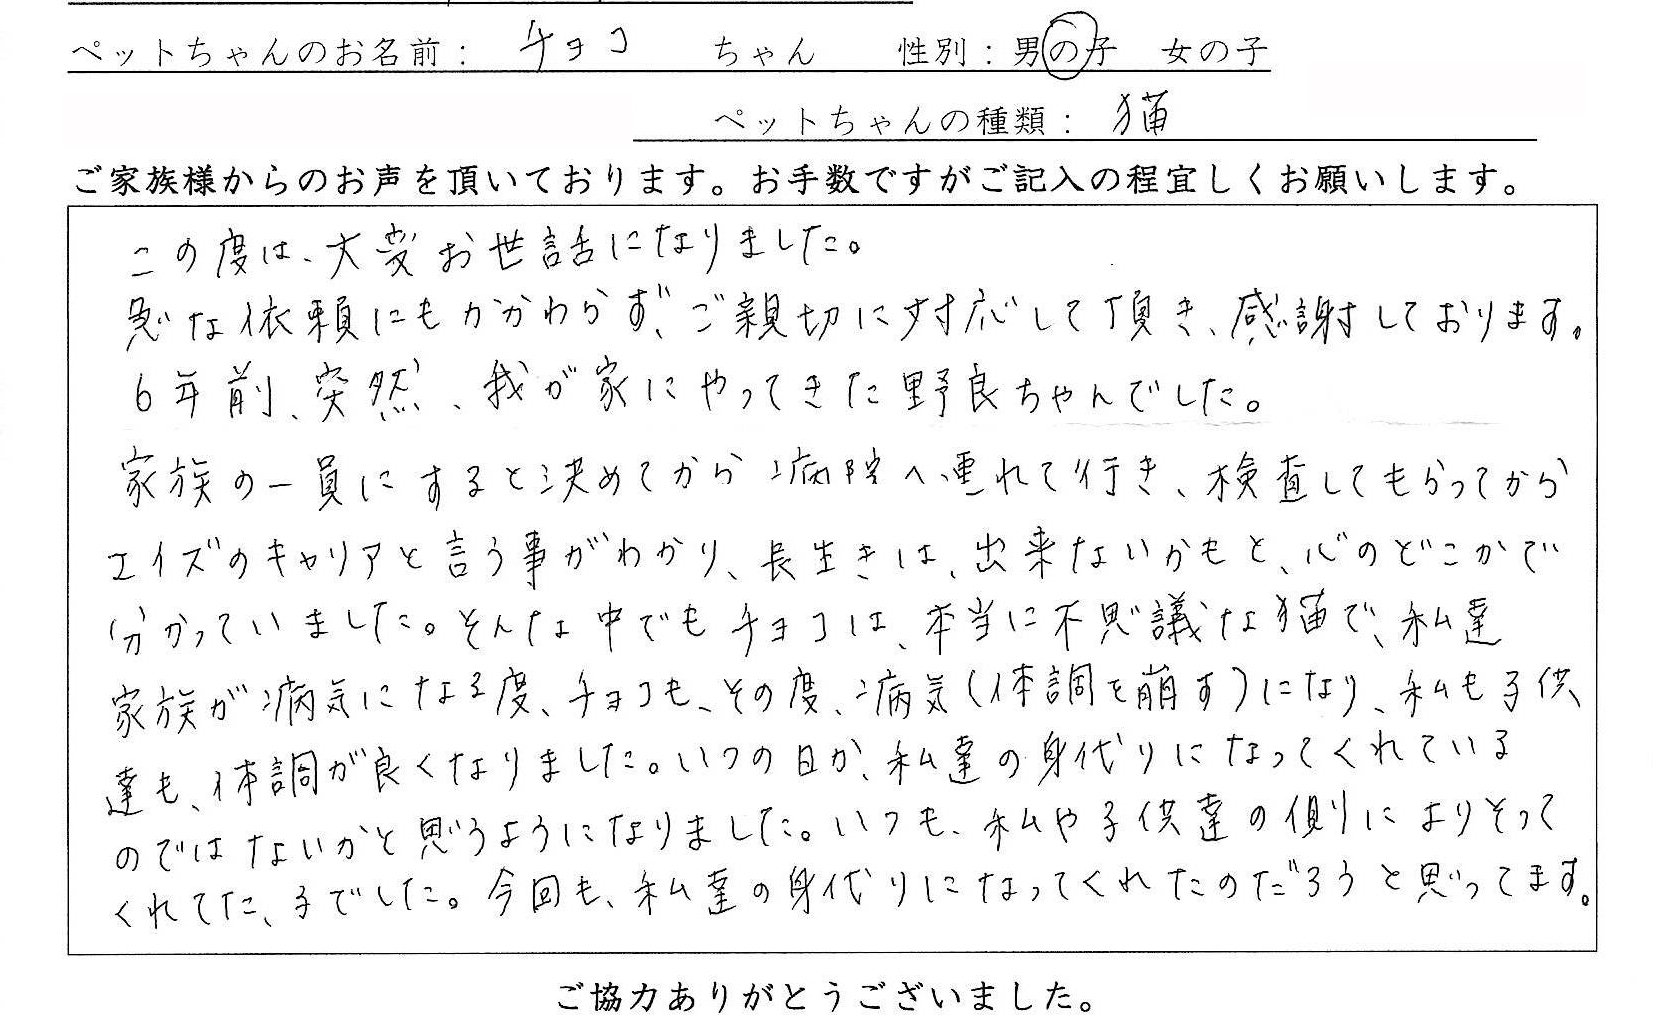 ペットちゃんのお名前： チョコ ちゃん 性別：男の子 女の子
ペットちゃんの種類： 猫
ご家族様からのお声を頂いております。お手数ですがご記入の程宜しくお願いします。
この度は、大変お世話になりました。
急な依頼にもかかわらず、ご親切に対応して頂き、感謝しております。
6年前、突然、我が家にやってきた野良ちゃんでした。
家族の一員にすると決めてから病院へ連れて行き、検査してもらってから
エイズのキャリアと言う事がわかり、長生きは、出来ないかもと、心のどこかで
分かっていました。そんな中でもチョコは、本当に不思議な猫で、私達
家族が病気になる度、チョコも、その度、病気(体調を崩す)になり、私も子供
達も、体調が良くなりました。いつの日か、私達の身代りになってくれている
のではないかと思うようになりました。いつも、私や子供達の側によりそって
くれてた、子でした。今回も、私達の身代りになってくれたのだろうと思ってます。
ご協力ありがとうございました。